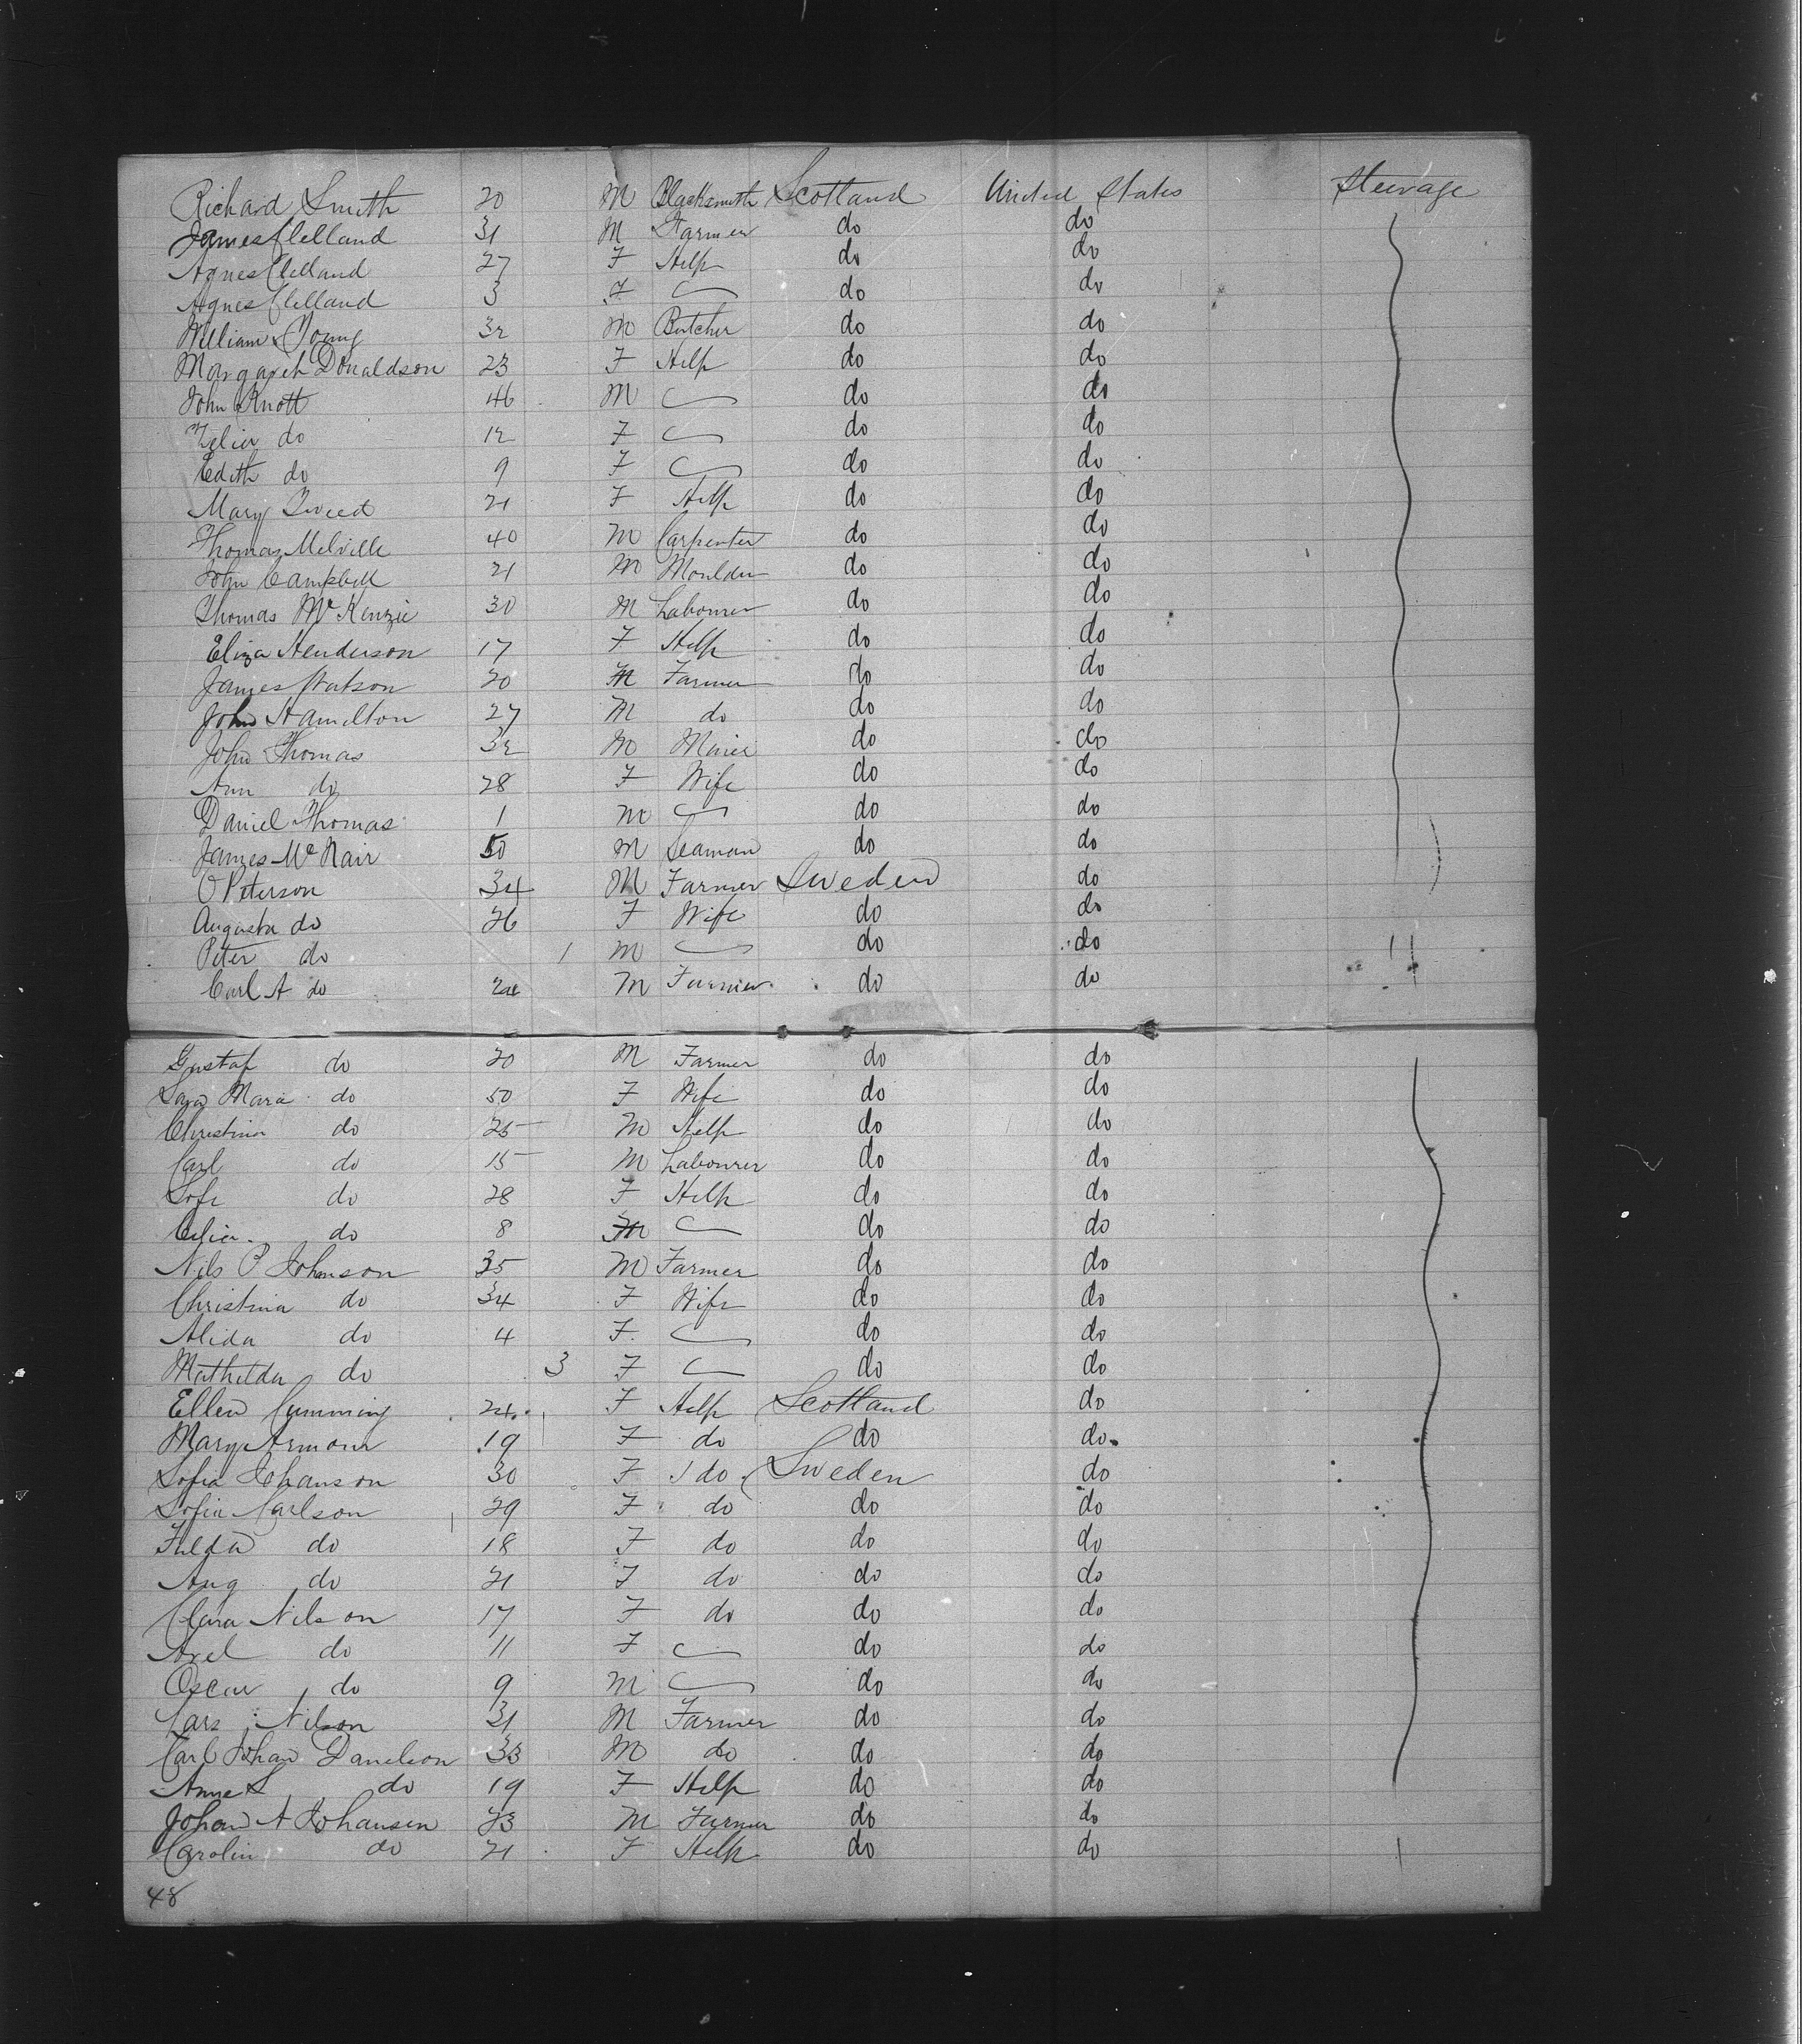 Richard Smith 20 M Blacksmith Scotland United States Steerage
James Clelland 31 M Farmer do do
Agnes Clelland 27 F Help do do
Agnes Clelland 3 F do do
William Young 32 M Butcher do do
Margaret Donaldson 23 F Help do do
John Knott 46 M do do
do 12 F do do
Edith do 9 F do do
Mary Tweed 21 F Help do do
Thomas Melville 40 M Carpenter do do
John Campbell 21 M Moulder do do
Thomas McKenzie 30 M Labourer do do
Eliza Henderson 17 F Help do do
James Watson 20 M Farmer do do
John Hamilton 27 M do do do
John Thomas 32 M Miner do do
Ann do 28 F Wife do do
Daniel Thomas 1 M do do
James McNair 50 M Seaman do do
O Peterson 34 M Farmer Sweden do
Augusta do 26 F Wife do do
Peter do 1 M do do
Carl A do 24 M Farmer do do
Gustaf do 20 M Farmer do do
Sara Maria do 50 F Wife do do
Christina do 25 M Help do do
Carl do 15 M Labourer do do
Sofi do 28 F Help do do
do 8 M do do
Nils P Johanson 35 M Farmer do do
Christina do 34 F Wife do do
Alida do 4 F do do
Mathilda do 3 F do do
Ellen Cumming 24 F Help Scotland do
Mary Armour 19 F do do do
Sofia Johanson 30 F do Sweden do
Sofia Carlson 29 F do do do
do 18 F do do do
Aug do 21 F do do do
Clara Nilson 17 F do do do
Axel do 11 F do do
Oscar do 9 M do do
Lars Nilson 31 M Farmer do do
Carl Johan Danielson 33 M do do do
Anne S do 19 F Help do do
Johan A Johansen 23 M Farmer do do
Carolin do 21 F Help do do
48